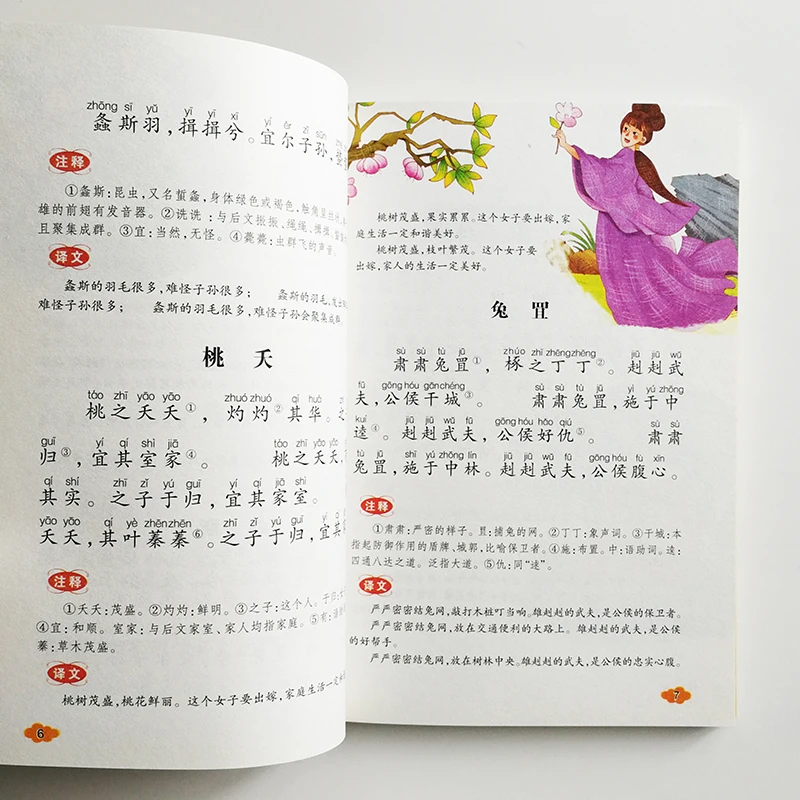 zhōng sī yǔ yī yī xī yí ěr zǐ sūn
螽斯羽，揖揖兮。宜尔子孙，
注释
①螽斯：昆虫，又名蜇螽，身体绿色或褐色，触角
雄的前翅有发音器。②诜诜：与后文振振、绳绳、揖揖、
且聚集成群。③宜：当然，无怪。④薨薨：虫群飞的声音。
译文
螽斯的羽毛很多，难怪子孙很多； 螽斯的羽毛，发出
难怪子孙很多； 螽斯的羽毛很多，难怪子孙会聚集成
桃 夭
táo zhī yāo yāo zhuó zhuó qí huá
桃之夭夭①，灼灼②其华。之
guī yí qí shì jiā táo zhī yāo yāo
归③，宜其室家④。 桃之夭夭，
qí shí zhī zǐ yú guī yí qí jiā shì
其实。之子于归，宜其家室。
yāo yāo qí yè zhēn zhēn zhī zǐ yú guī yí qí
夭夭，其叶蓁蓁⑥。之子于归，宜其
注释
①夭夭：茂盛。②灼灼：鲜明。③之子：这个人。于归：
④宜：和顺。室家：与后文家室、家人均指家庭。⑤有：
蓁：草木茂盛。
译文
桃树茂盛，桃花鲜丽。这个女子要出嫁，家庭生活一定
6
桃树茂盛，果实累累。这个女子要出嫁，家
庭生活一定和谐美好。
桃树茂盛，枝叶繁茂。这个女子要
出嫁，家人的生活一定美好。
兔 罝
sù sù tù jū zhuó zhī zhēng zhēng jiū jiū wǔ
肃肃兔罝①，椓之丁丁②。赳赳武
fū gōng hóu gān chéng sù sù tù jū yì yú zhōng
夫，公侯干城③。 肃肃兔罝，施于中
kuí jiū jiū wǔ fū gōng hóu hǎo qiú sù sù
逵④。赳赳武夫，公侯好仇⑤。 肃肃
tù jū shī yú zhōng lín jiū jiū wǔ fū gōng hóu fù xīn
兔罝，施于中林。赳赳武夫，公侯腹心。
注释
①肃肃：严密的样子。罝：捕兔的网。②丁丁：象声词。③干城：本
指起防御作用的盾牌、城郭，比喻保卫者。④施：布置。中：语助词。逵：
四通八达之道。泛指大道。⑤仇：同“逑”。
译文
严严密密结兔网，敲打木桩叮当响。雄赳赳的武夫，是公侯的保卫者。
严严密密结兔网，放在交通便利的大路上。雄赳赳的武夫，是公侯
的好帮手。
严严密密结兔网，放在树林中央。雄赳赳的武夫，是公侯的忠实心腹。
7